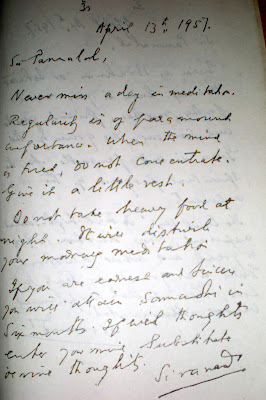 April 13th, 1957.
Sri Pannalal,
Never miss a day in meditation.
Regularity is of paramount
importance. When the mind
is tired, do not concentrate.
Give it a little rest.
Do not take heavy food at
night. It will disturb
your morning meditation
If you are earnest and sincere
you will attain Samadhi in
Six months. If evil thoughts
enter your mind Substitute
divine thoughts.
Sivananda